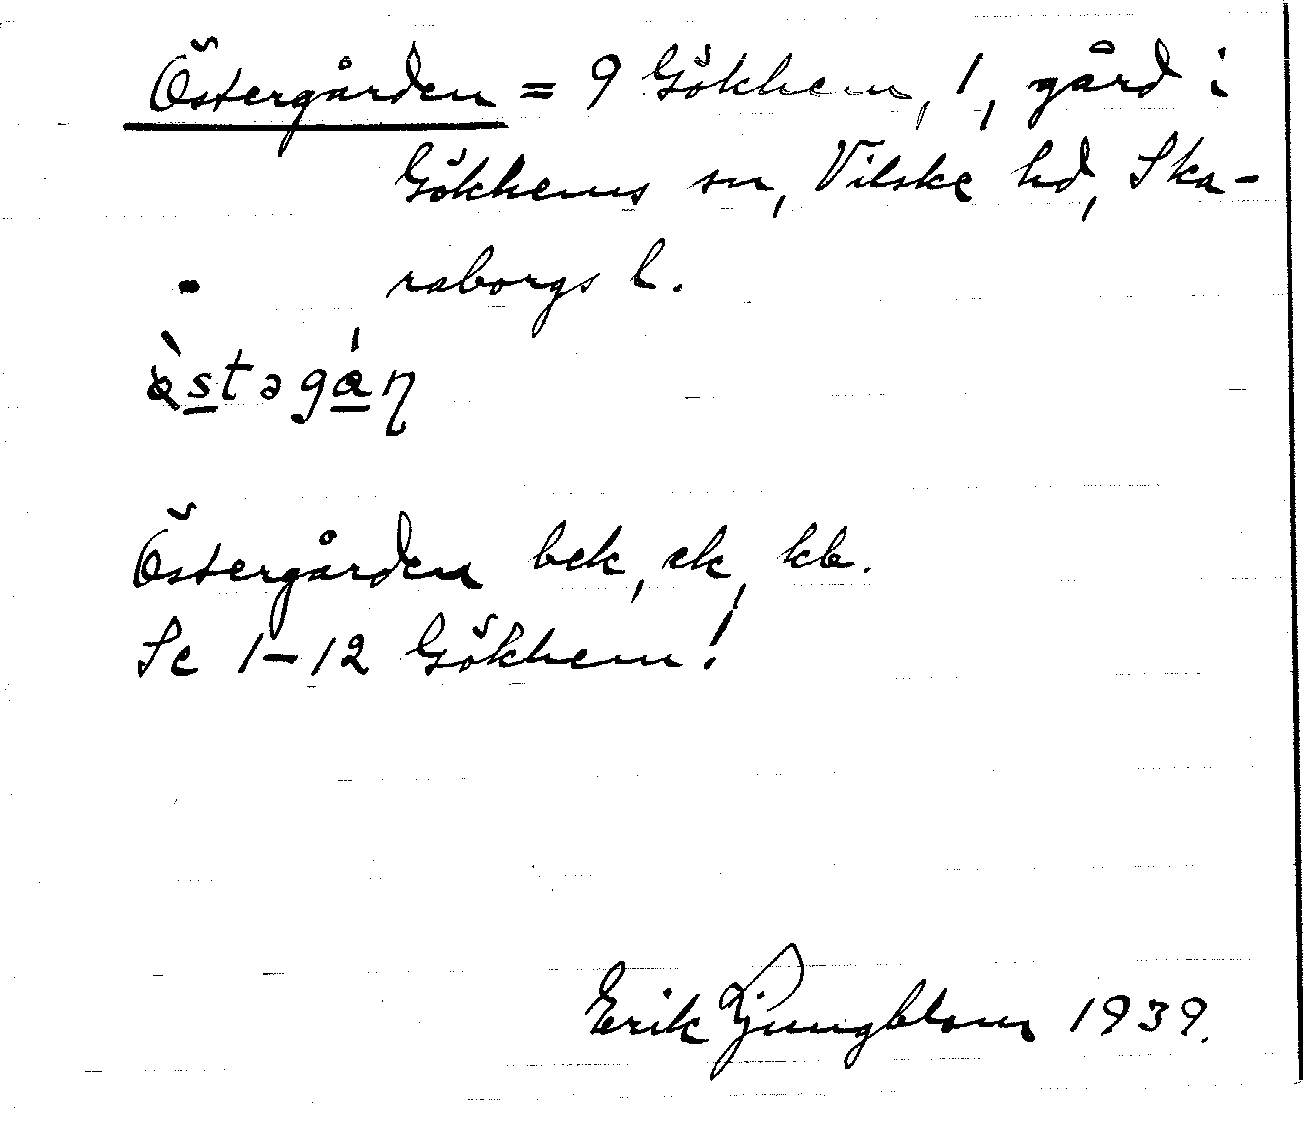 Östergården = 9 Gökhem, 1, gård i
Gökhems sn, Vilske hd, Ska-
raborgs l.
östəgån
Östergården bek, ek, kb.
Se 1-12 Gökhem!
Erik Ljungblom 1939.